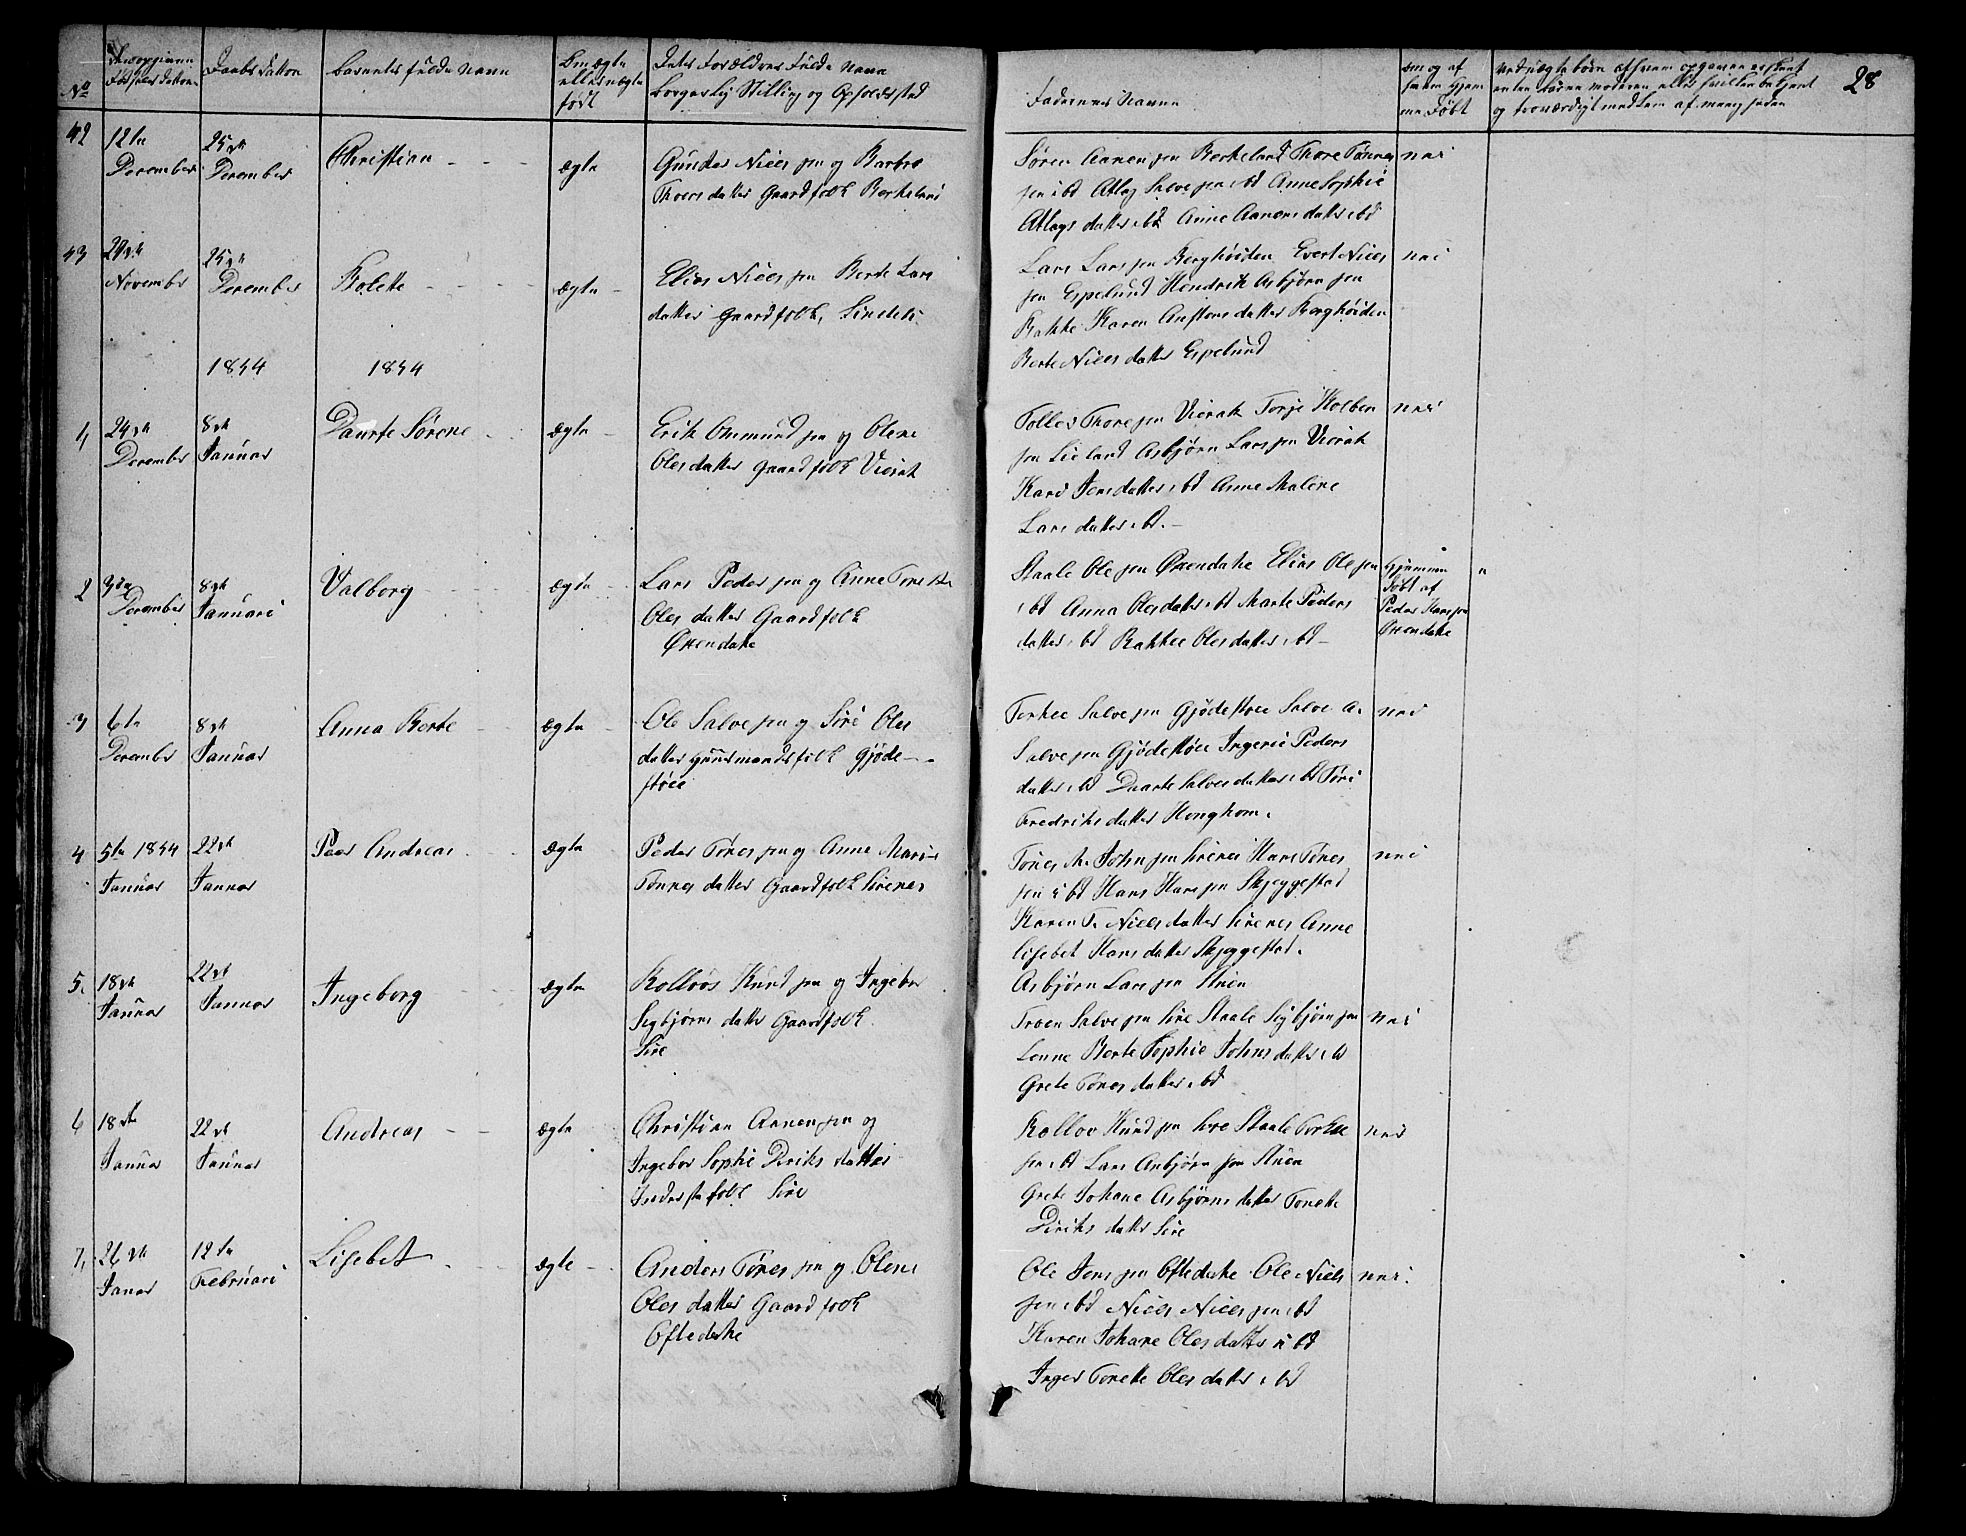 No
Fødsels Datton
Daabs Datton
Barnets fulde Navn
Om ægte
eller uægte
født
Dets Forældres Fulde Navn
Borgerlig Stilling og Opholdssted
Faderenes Navne
om og af
hvem Hjem
me Døbt
28
42
12te
December
25de
December
Christian
ægte
Gunder Niels sen og Barbro
Thores datter Gaardfolk Berkeland
Søren Aanen sen Berkeland Thore Tønnes
sen i bd Atlag Salve sen i bd Anne Sophie
Atlags datter i bd Anne Aanens datter i bd
nei
43
November
25de
December
Bolette
ægte
Elias Niels sen Berte Lars
datter Gaardfolk
Lars Lars sen Berghøiden Evert Niels
sen Espelund Hendrik Asbjørn sen
Bakke Karen datter Berghøiden
Berte Niels datter Espelund
nei
1854
1854
1,
24de
December
8de
Januar
Daarte Sørene
ægte
Erik Ommund sen og Olene
Oles datter Gaardfolk Virak
Tolles Thore sen Virak Terje Kolben
sen Lieland Asbjørn Lars sen Virak
Kari Jens datter i bd Anne Malene
Lars datter i bd.
nei
2
3die
December
8de
Januari
Valborg
ægte
Lars Peder sen og Anne
Oles datter Gaardfolk
Øxendale
Staale Ole sen Øxendale Elias Ole sen
i bd Anna Oles datter i bd Marte Peders
datter i bd Rakkel Oles datter i bd
Hjemme
Døbt af
Peder Hans sen
Øxendale
"
3
6te
December
8de
Januar
Anna Berte
ægte
Ole Salve sen og Siri Oles
datter Huusmandsfolk Gjøde-
støl
Terkel Salve sen Gjødestøl Salve A.
Salve sen Gjødestøl Ingerie Peders
datter i bd Daarte Salves datter i bd Tøri
Fredriks datter Honghom.
nei
4
5te 1854
Januar
22de
Januar
Peer Andreas
ægte
Peder Tønes sen og Anne Marie
Tønnes datter Gaardfolk Sirenes
Tønes M. John sen Sirenes Hans Tønes
sen i bd Hans Hans sen Skjeggestad
Karen T. Niels datter Sirenes Anne
Lisebet Hans datter Skjeggestad.
nei
5.
18de
Januar
22de
Januar
Ingeborg
ægte
Rolløv Knud sen og Ingebor
Segbjørns datter Gaardfolk
Sire
Asbjørn Lars sen Stuen
Troen Salve sen Sire Staale Segbjørn sen
Lonne Berte Sophie Johns datter i bd
Grete Tønes datter i bd
nei
6
18de
Januar
22de
Januar
Andreas
ægte
Christian Aanen sen og
Ingebor Sophie Diriks datter
Inderstfolk Sire
Rollov Knud sen Sire Staale Terkel
sen i bd Lars Asbjørn sen Stuen
Grete Johane Asbjørns datter Tonette
Diriks datter Sire
nei
7,
26de
Januar
12te
Februari
Lisebet
ægte
Anders Tønes sen og Olene
Oles datter Gaardfolk
Oftedahl
Ole Jens sen Oftedahl Ole Niels
sen i bd Niels Niels sen i bd
Karen Johane Oles datter i bd
Inger Tonette Oles datter i bd
nei.